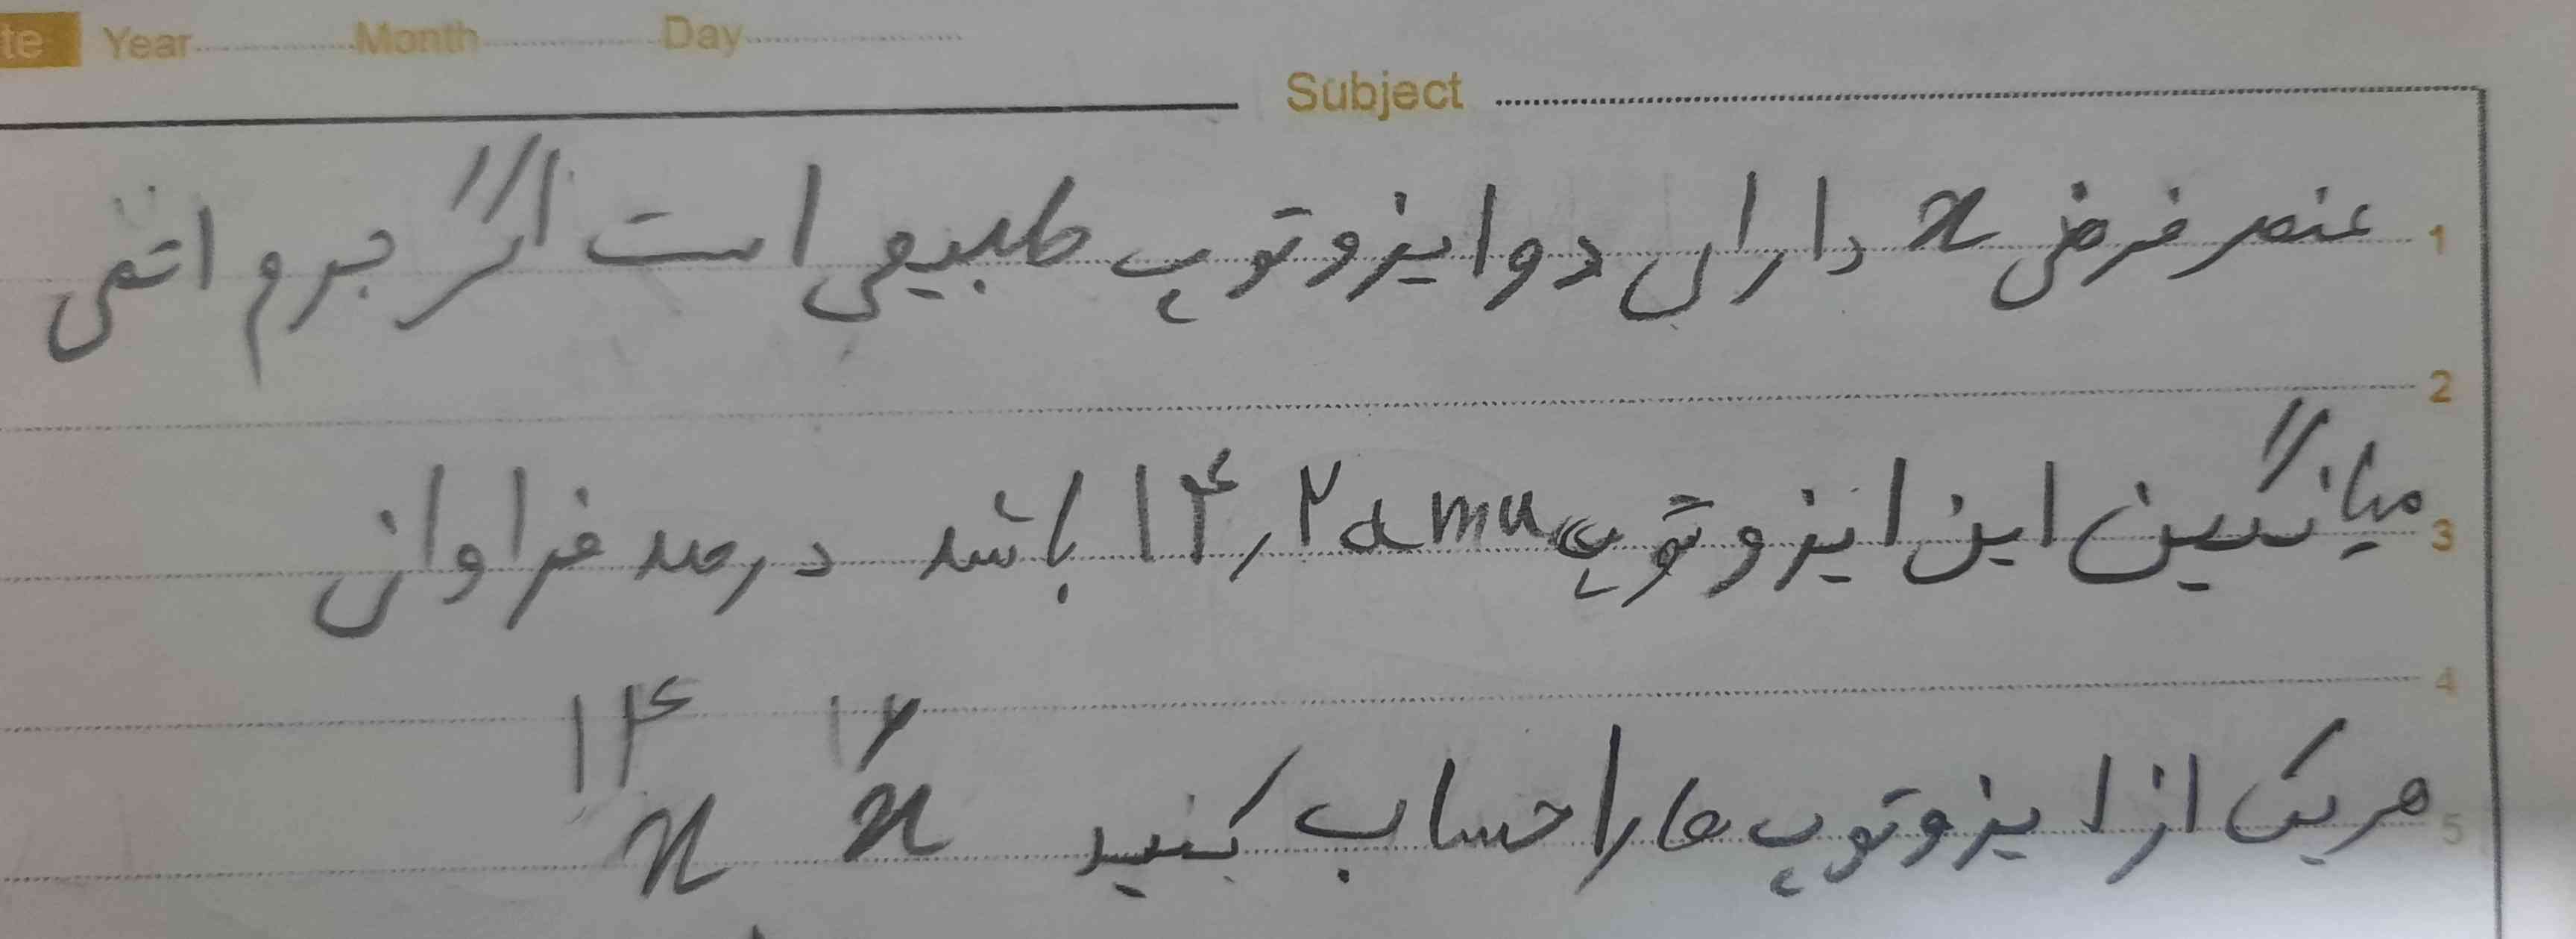 te Year Month Day
Subject
عنصر فرضی x دارای دو ایزوتوپ طبیعی است اگر جرم اتمی
1
2
میانگین این ایزوتوپ ۱۴٫۲amu باشد درصد فراوانی
3
4
۱۴x
هریک از ایزوتوپ ها را حساب کنید
5